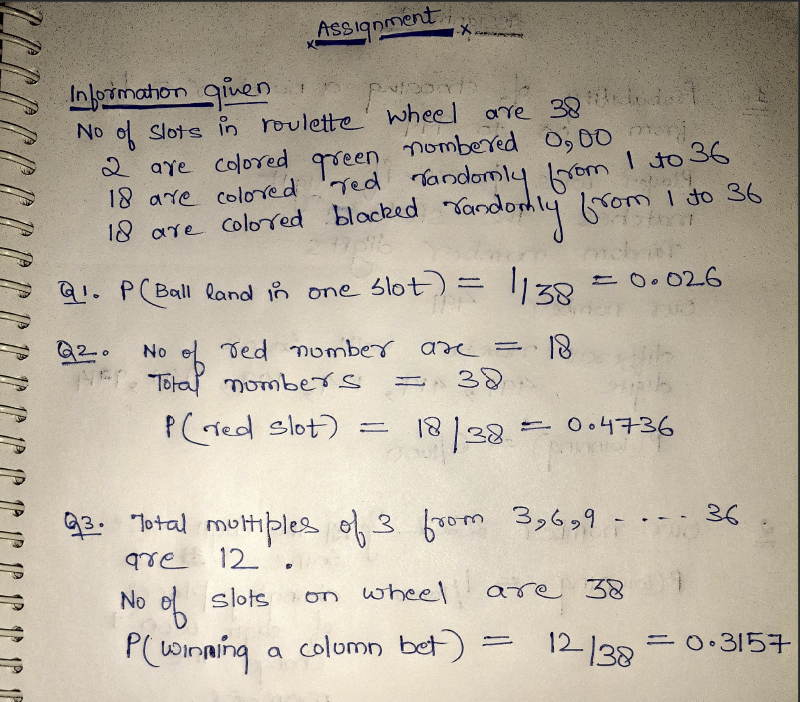 Assignment
Information given
No of slots in roulette wheel are 38
2 are colored green nombered 0,00
18 are colored red randomly from 1 to 36
18 are colored blacked randomly from 1 to 36
Q1. P(Ball land in one slot) = 1/38 = 0.026
Q2. No of red number are = 18
Total numbers = 38
P(red slot) = 18/38 = 0.4736
Q3. Total multiples of 3 from 3,6,9 - . - - - 36
are 12 .
No of slots on wheel are 38
P(winning a column bet) = 12/38 = 0.3157